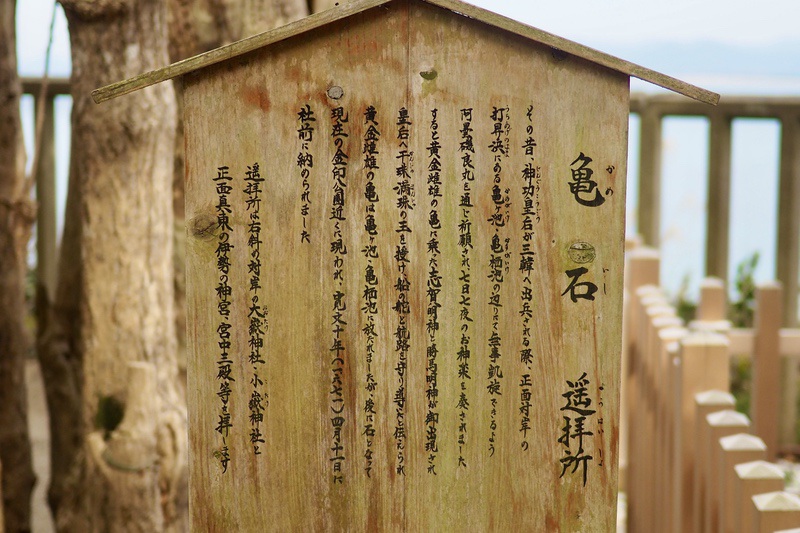 亀石 遥拝所
その昔、神功皇后が三韓へ出兵される際、正面対岸の
打昇浜にある亀ヶ池・亀栖池の辺りにて無事凱旋できるよう
阿曇磯良丸を通じ祈願され七日七夜のお神楽を奏されました
すると黄金雌雄の亀に乗った志賀明神と勝馬明神が御出現され
皇后へ干珠・満珠の玉を授け、船の舵と航路を守り導いたと伝えられ
黄金雌雄の亀は亀ヶ池・亀栖池に放たれましたが、後に石となって
現在の金印公園近くに現われ、寛文十年(一六七一)四月十一日に
社前に納められました
遥拝所は右斜の対岸の大嶽神社・小嶽神社と
正面真東の伊勢の神宮・宮中三殿等を拝します